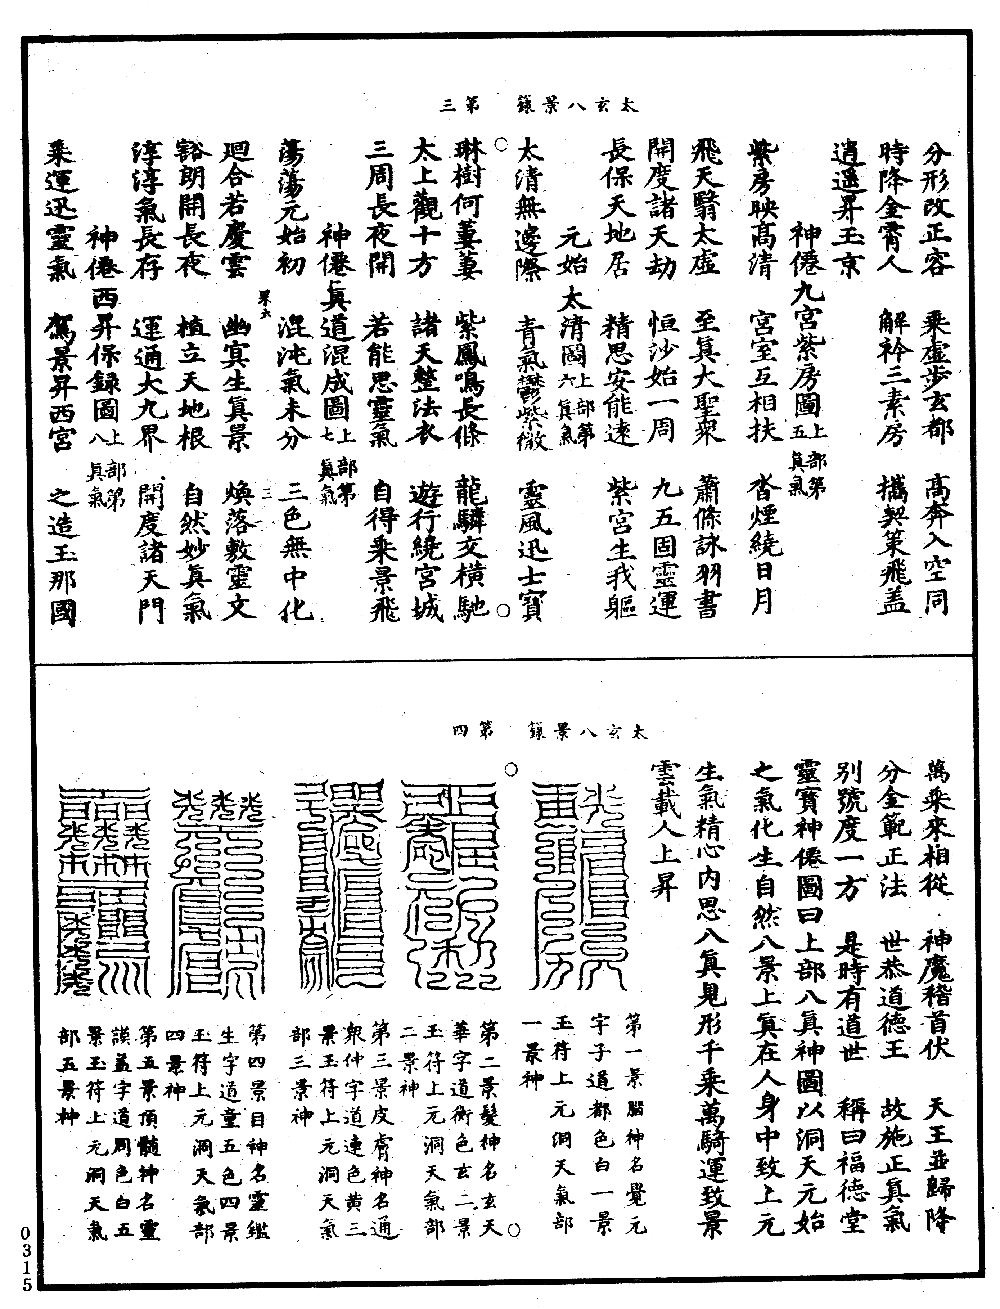 太玄八景籙　第三
分形改正容　乘虛步玄都　高奔入空同
時降金霄人　解衿三素房　攜契策飛蓋
逍遥昇玉京
神僊九宮紫房圖上部第五真氣
紫房映高清　宮室互相扶　沓煙繞日月
飛天翳太虛　至真大聖衆　蕭條詠羽書
開度諸天劫　恒沙始一周　九五固靈運
長保天地居　精思安能速　紫宮生我軀
元始太清圖上部第六真氣
太清無邊際　青氣鬱紫微　靈風迅士寶
琳樹何萋萋　紫鳳鳴長條　龍驎交橫馳
太上觀十方　諸天整法衣　遊行繞宮城
三周長夜開　若能思靈氣　自得乘景飛
神僊真道混成圖上部第七真氣
蕩蕩元始初　混沌氣未分　三色無中化
迴合若慶雲　幽冥生真景　煥落敷靈文
豁朗開長夜　植立天地根　自然妙真氣
淳淳氣長存　運通大九界　開度諸天門
神僊西昇保録圖上部第八真氣
乘運迅靈氣　駕景昇西宮　之造玉那國
太玄八景籙　第四
萬乘來相從　神魔稽首伏　天王並歸降
分金範正法　世恭道德王　故施正真氣
別號度一方　是時有道世　稱曰福德堂
靈寶神僊圖曰上部八真神圖以洞天元始
之氣化生自然八景上真在人身中致上元
生氣精心內思八真見形千乘萬騎運致景
雲載人上昇
第一景腦神名覺元
字子道都色白一景
玉符上元洞天氣部
一景神
第二景髮神名玄天
華字道衛色玄二景
玉符上元洞天氣部
二景神
第三景皮膚神名通
衆仲字道連色黄三
景玉符上元洞天氣
部三景神
第四景目神名靈鑑
生字道童五色四景
玉符上元洞天氣部
四景神
第五景頂髓神名靈
謨蓋字道周色白五
景玉符上元洞天氣
部五景神
0315